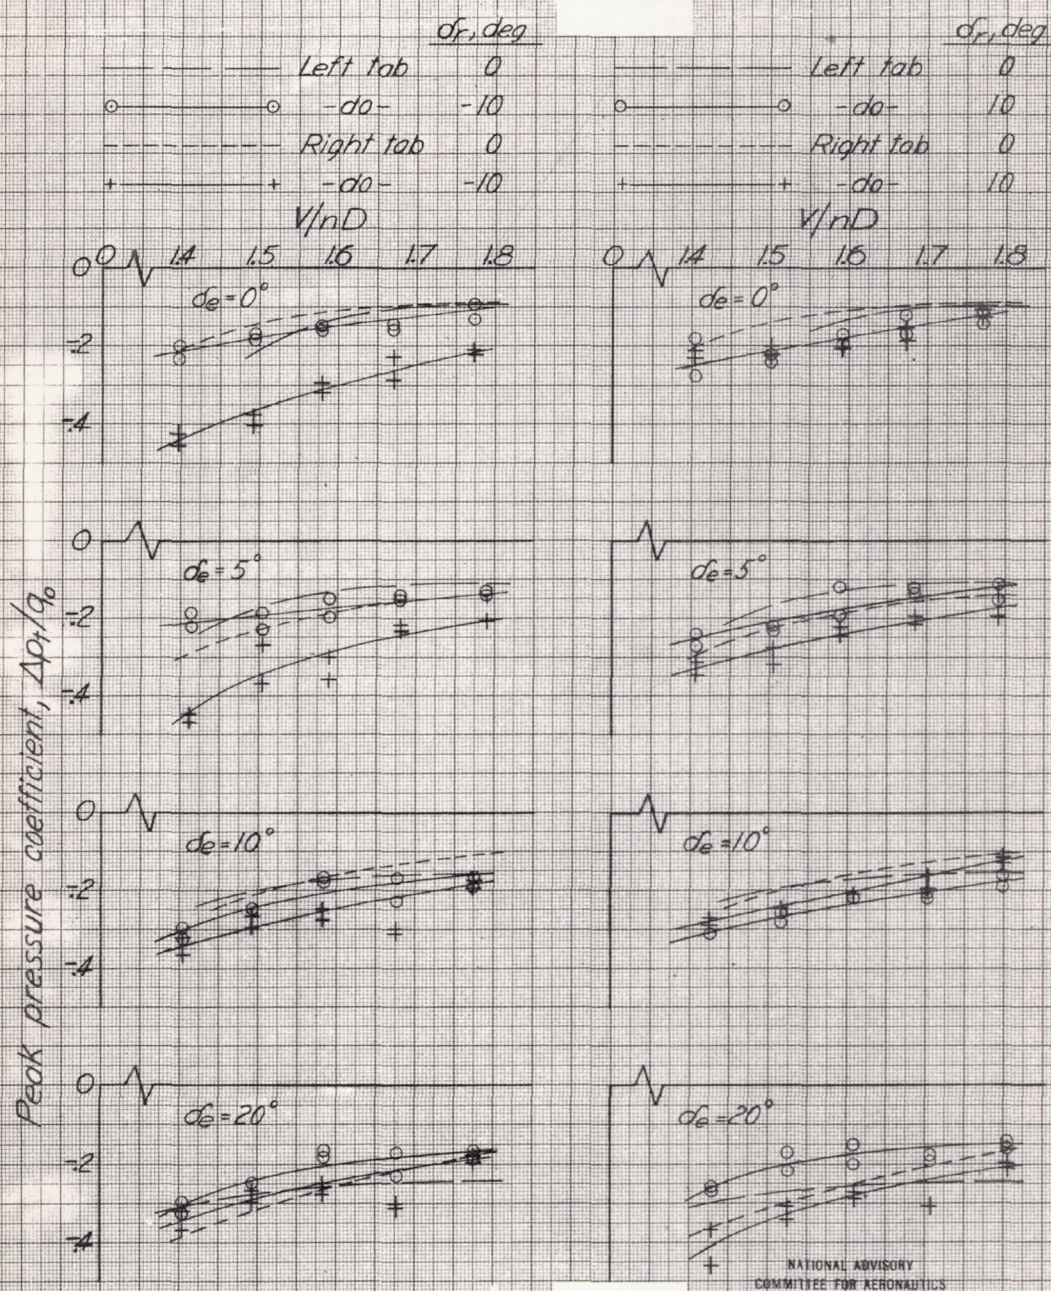 δr, deg
Left tab 0
-do- -10
Right tab 0
-do- -10
V/nD
0 1.4 1.5 1.6 1.7 1.8
0
δe = 0°
-.2
-.4
0
δe = 5°
-.2
-.4
0
δe = 10°
-.2
-.4
0
δe = 20°
-.2
-.4
Peak pressure coefficient, Δpt/q₀
δr, deg
Left tab 0
-do- 10
Right tab 0
-do- 10
V/nD
0 1.4 1.5 1.6 1.7 1.8
δe = 0°
δe = 5°
δe = 10°
δe = 20°
NATIONAL ADVISORY
COMMITTEE FOR AERONAUTICS